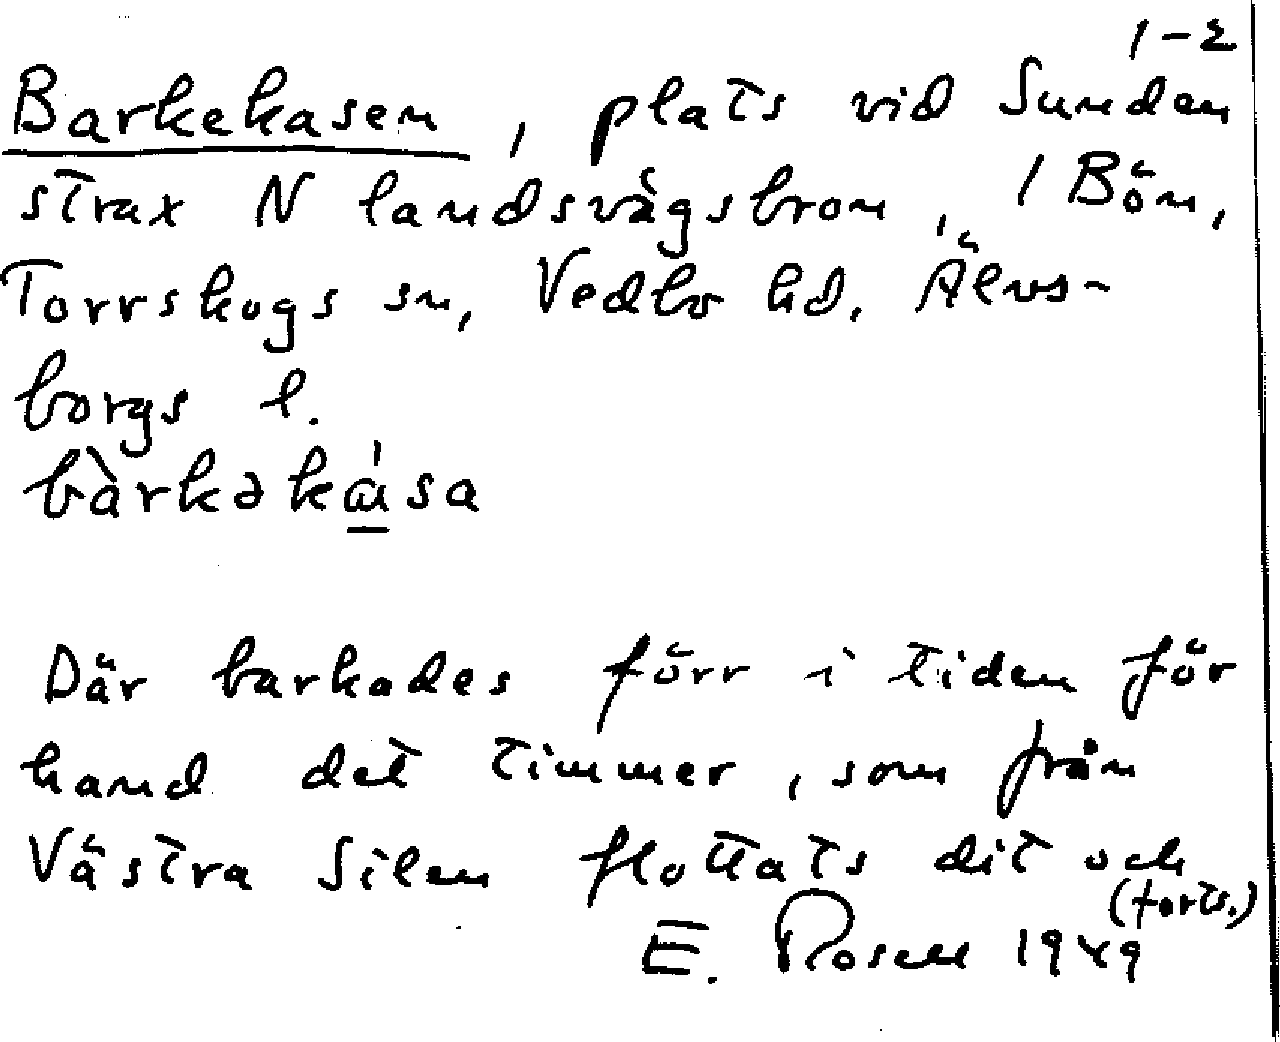 1-2
Barkekasen, plats vid Sunden
strax N landsvägsbron, 1 Bön,
Torrskogs sn, Vedbo hd, Älvs-
borgs l.
bàrkəkása
Där barkades förr i tiden för
hand det timmer, som från
Västra Silen flottats dit och
(forts.)
E. Rosell 1949